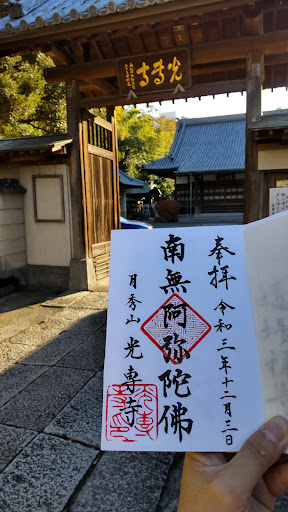 光專寺
奉拝
令和三年十二月三日
南無阿弥陀佛
月秀山 光專寺